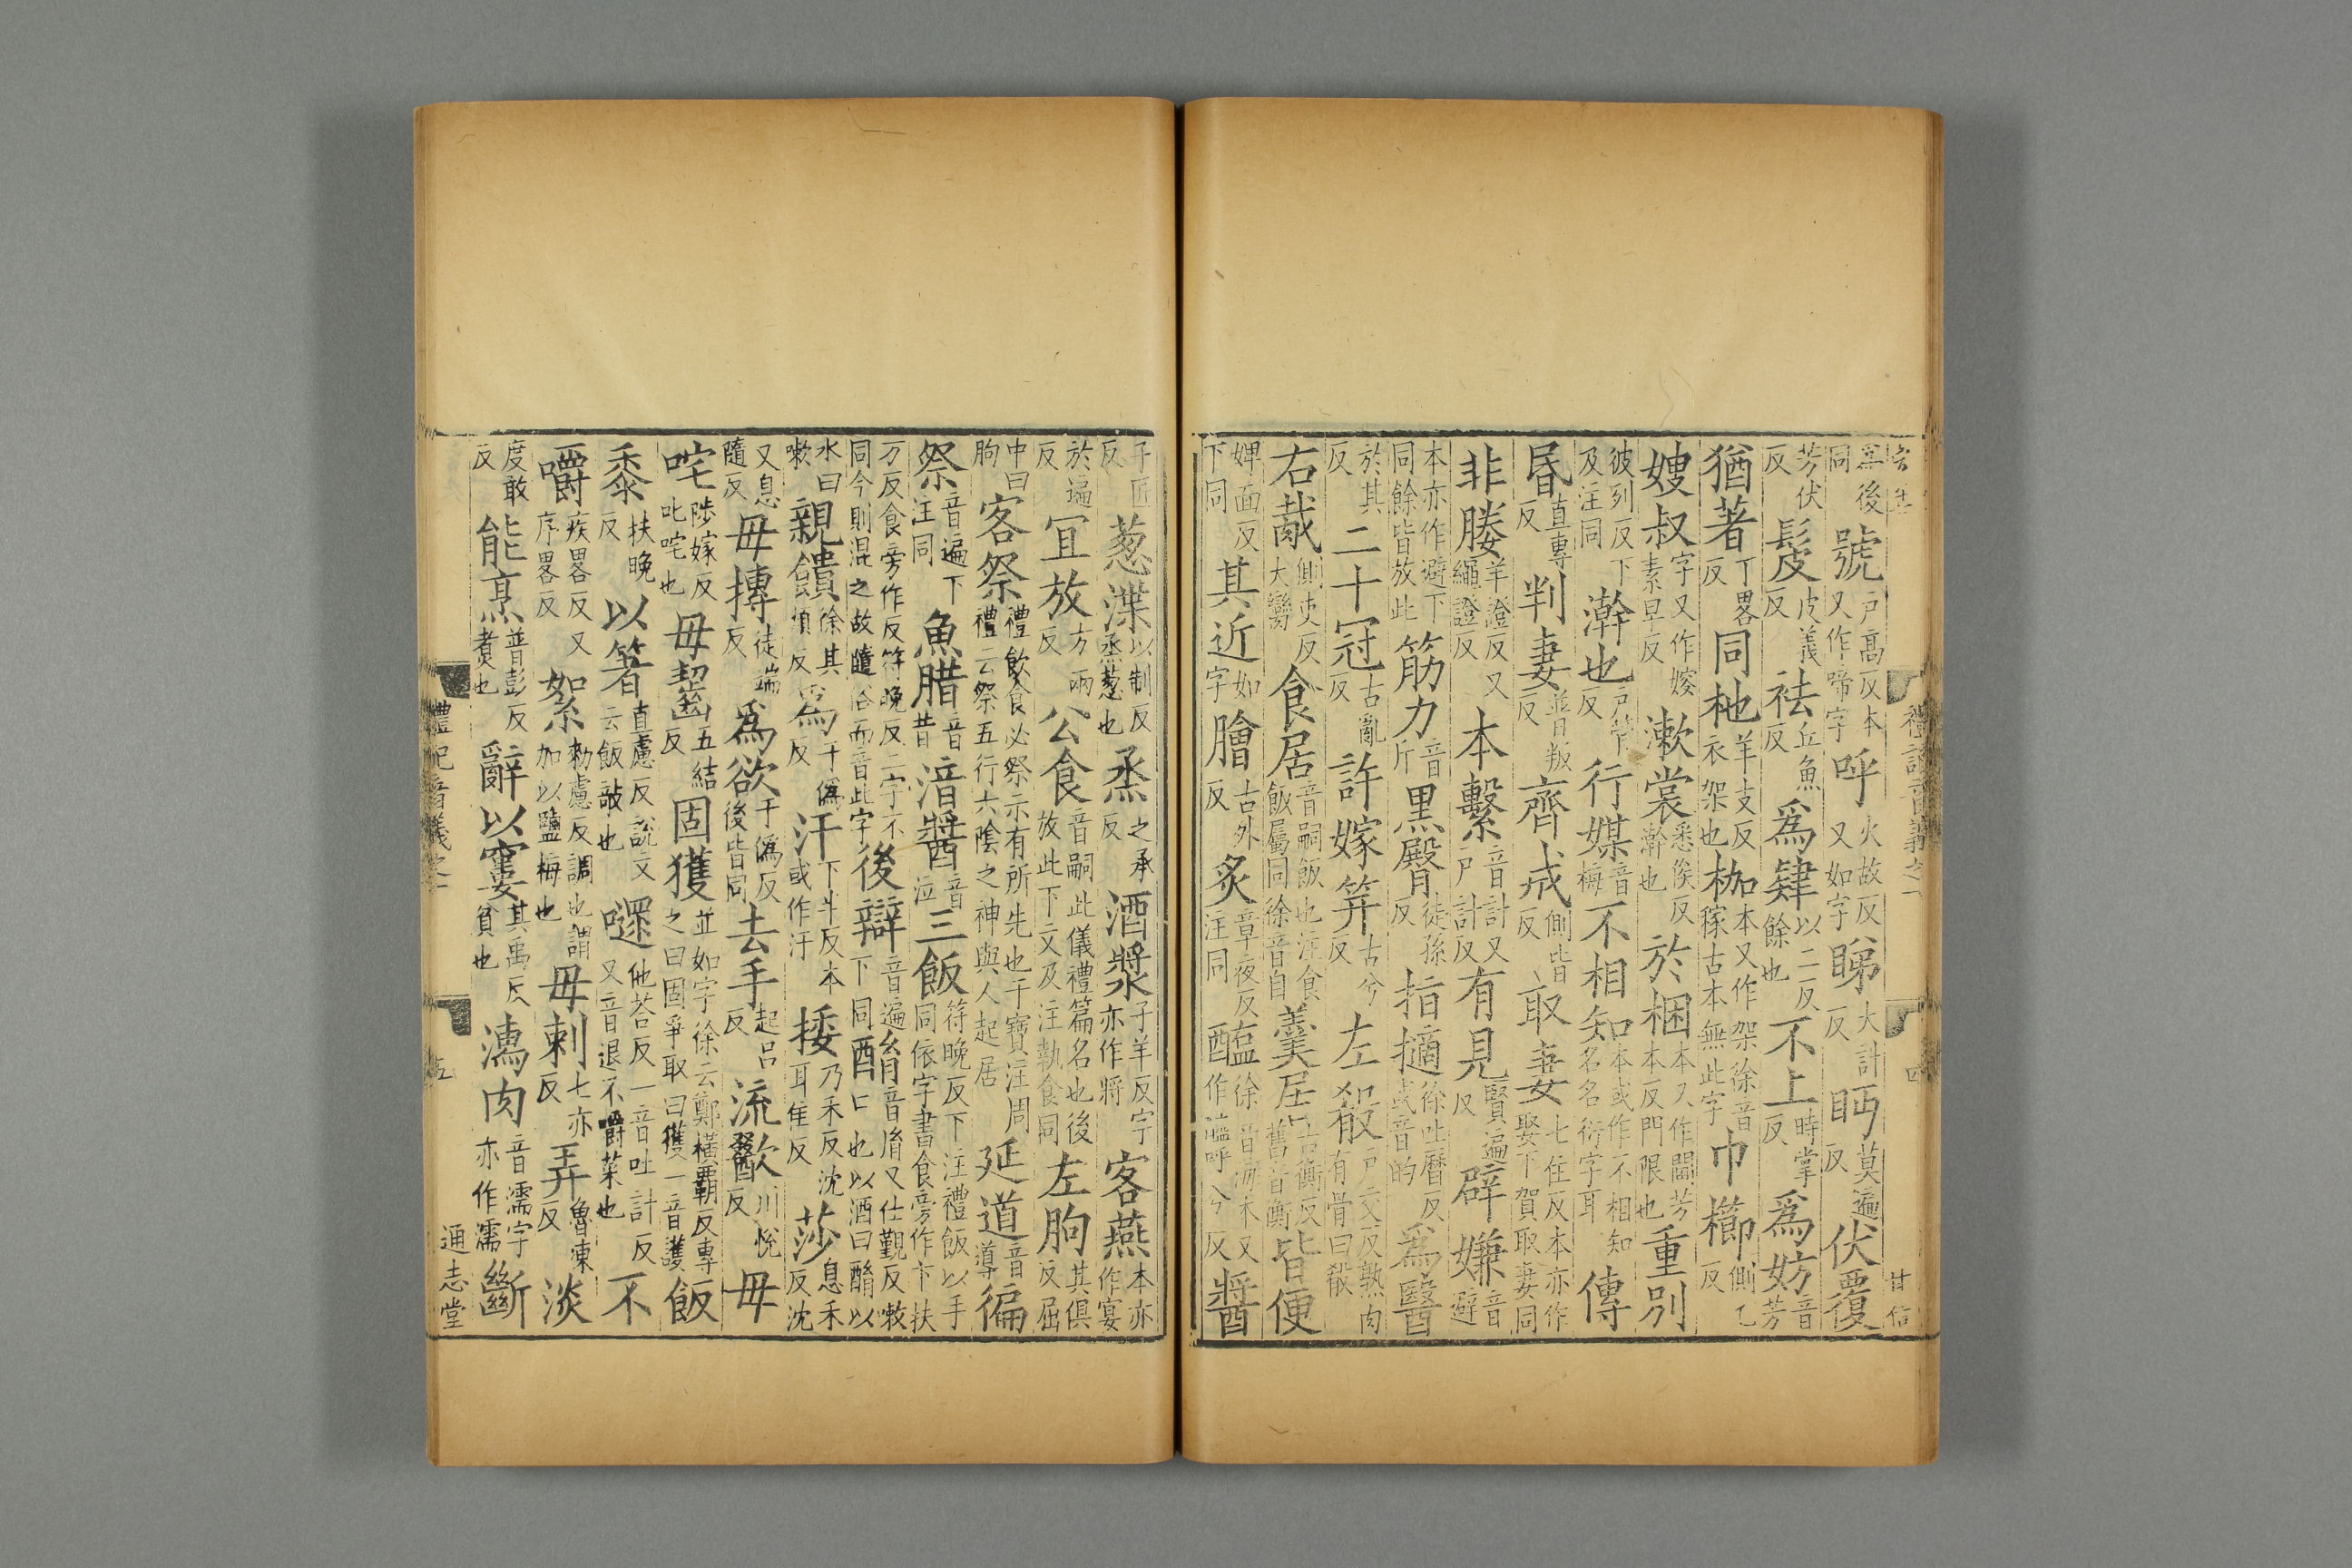 爲後同號戶高反本又作啼字呼火故反又如字睇大計反眄莫遍反伏覆
芳伏反髲皮義反袪丘魚反爲肄以二反餘也不上時掌反爲妨音芳
猶著丁畧反同杝羊支反衣架也枷本又作架徐音稼古本無此字巾櫛側乙反
嫂叔字又作㛮素早反漱裳悉侯反澣也於梱本又作閫芳本反門限也重別
彼列反下及注同澣也戶管反行媒音梅不相知本或作不相知名名衍字耳傳
昬直專反判妻並普叛反齊戒側皆反取妻七住反本亦作娶下賀取妻同
非媵羊證反又繩證反本繫音計又戶計反有見賢遍反辟嫌音避
本亦作避下同餘皆放此筋力音斤黑臀徒孫反指擿徐吐曆反或音的爲醫
於其反二十冠古亂反許嫁笄古兮反左殽戶交反熟肉有骨曰殽
右胾側吏反大臠食居音嗣飯也注食飯屬同徐音自羹居古衡反舊音衡皆便
婢面反下同其近如字膾古外反炙章夜反注同醯徐音海本又作醯呼兮反醬
子匠反葱渫以制反烝葱也烝之承反酒漿子羊反字亦作將客燕本亦作宴
於遍反宜放方兩反公食音嗣此儀禮篇名也後放此下文及注執食同左朐其俱反屈
中曰朐客祭禮飲食必祭示有所先也干寶注周禮云祭五行六陰之神與人起居延道音導徧
祭音遍下注同魚腊音昔湆醬音泣三飯符晚反下注禮飯以手同依字書食旁作卞扶
万反食旁作反符晚反二字不同今則混之故隨俗而音此字後辯音遍下同酳音胤又仕覲反漱口也以酒曰酳以
水曰漱親饋徐其媿反爲于僞反汗下半反本或作汗捼乃禾反沈耳隹反莎息禾反沈
又息隨反毋摶徒端反爲欲于僞反後皆同去手起呂反流歠川悅反毋
咤陟嫁反叱咤也毋齧五結反固獲並如字徐云鄭橫霸反專之曰固爭取曰獲一音護飯
黍扶晚反以箸直慮反說文云飯攲也㗳他荅反一音吐計反又音退不嚼菜也不
嚼疾畧反又序畧反絮勑慮反調也謂加以鹽梅也毋刺七亦反弄魯凍反淡
度敢反能烹普彭反煑也辭以窶其禹反貧也濡肉音濡字亦作濡斷
禮記音義之一
五
通志堂